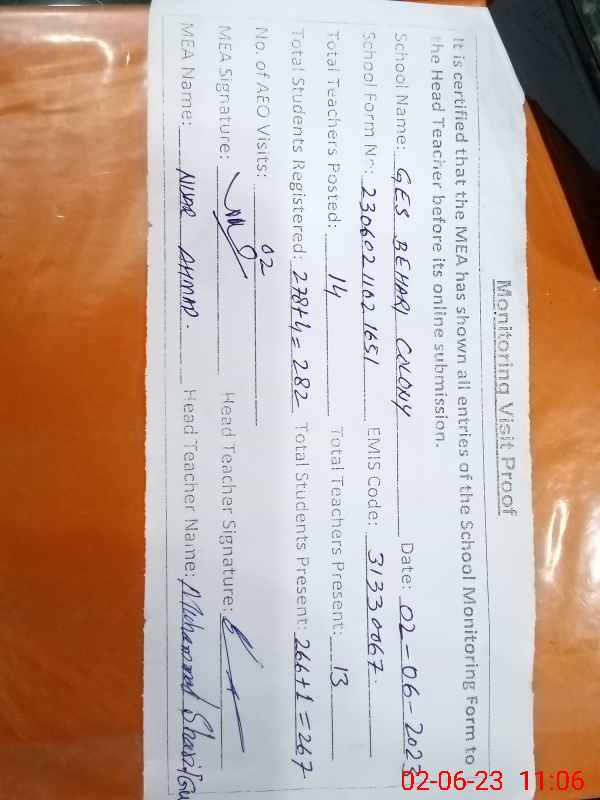 Monitoring Visit Proof
It is certified that the MEA has shown all entries of the School Monitoring Form to
the Head Teacher before its online submission.
School Name: GES BEHARI COLONY Date: 02-06-2023
School Form No: 2306021102 1651 EMIS Code: 31330067.
Total Teachers Posted: 14 Total Teachers Present: 13
Total Students Registered: 278+4=282 Total Students Present: 266+1=267
No. of AEO Visits: 02
MEA Signature: Head Teacher Signature:
MEA Name: NISAR AHMAD. Head Teacher Name: Mohammad
02-06-23 11:06